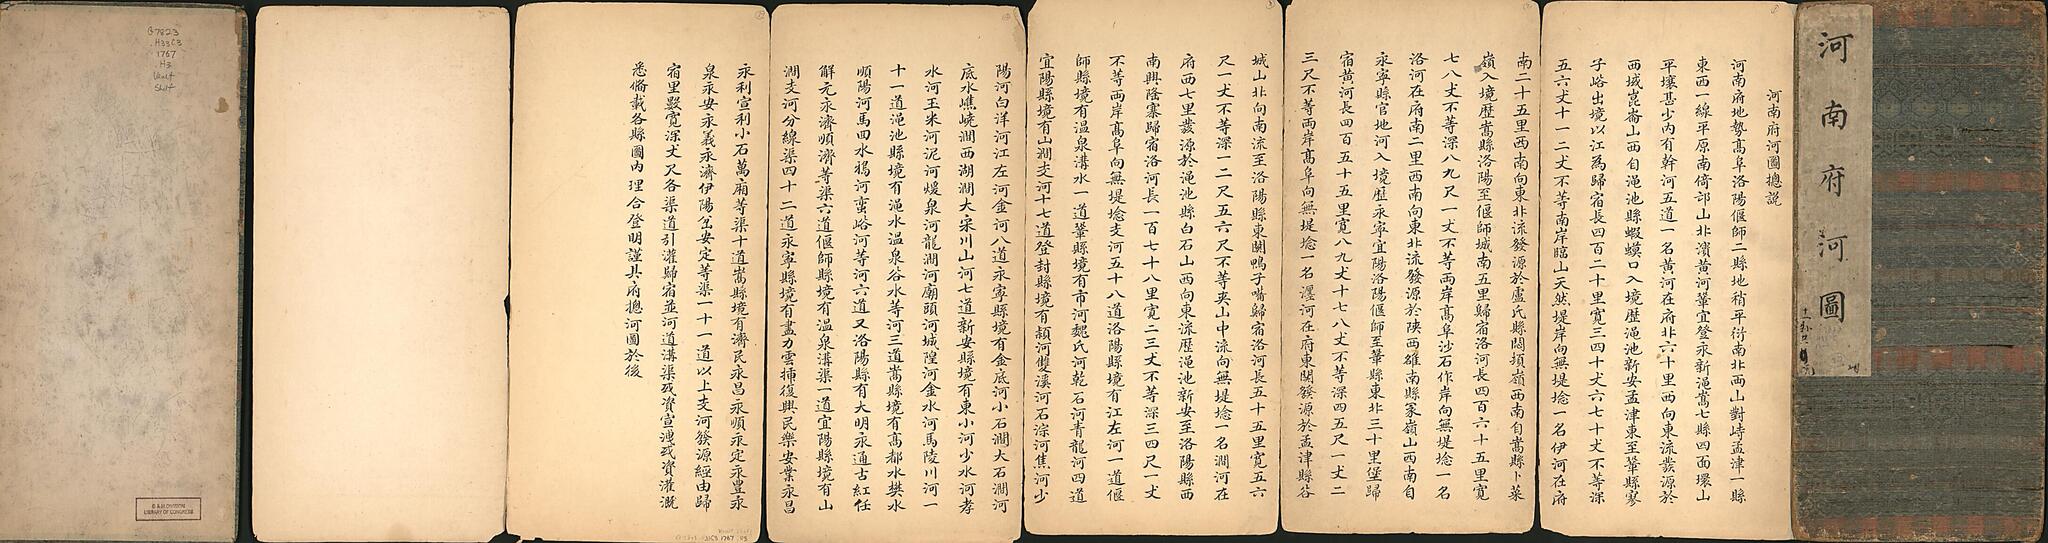 河南府河圖
河南府河圖摠説
河南府地勢髙阜洛陽偃師二縣地稍平衍南北兩山對峙孟津一縣
東西一線平原南倚邙山北濱黄河鞏宜登永新澠嵩七縣四面環山
平壤甚少内有幹河五道一名黄河在府北六十里西向東流發源於
西域崑崙山西自澠池縣蝦蟆口入境歴澠池新安孟津東至鞏縣寥
子峪出境以江為歸宿長四百二十里寬二四十丈六七十丈不等深
五六丈十一二丈不等南岸臨山天然堤岸向無堤埝一名伊河在府
南二十五里西南向東北流發源於盧氏縣悶頓嶺西南自嵩縣卜菜
嶺入境歴嵩縣洛陽至偃師城南五里歸宿洛河長四百六十五里寬
七八丈不等深八九尺一丈不等兩岸髙阜沙石作岸向無堤埝一名
洛河在府南二里西南向東北流發源於陜西雒南縣冢嶺山西南自
永寧縣官地河入境歴永寧宜陽洛陽偃師至鞏縣東北三十里堡歸
宿黄河長四百五十五里寬八九丈十七八丈不等深四五尺一丈二
三尺不等兩岸髙阜向無堤埝一名瀍河在府東關發源於孟津縣谷
城山北向南流至洛陽縣東關鴨子嘴歸宿洛河長五十五里寬五六
尺一丈不等深一二尺五六尺不等夾山中流向無堤埝一名澗河在
府西七里發源於澠池縣白石山西向東流歴澠池新安至洛陽縣西
南興隆寨歸宿洛河長一百七十八里寬二三丈不等深三四尺一丈
不等兩岸髙阜向無堤埝支河五十八道洛陽縣境有江左河一道偃
師縣境有温泉溝水一道鞏縣境有市河魏氏河乾石河青龍河四道
宜陽縣境有山澗支河十七道登封縣境有潁河雙溪河石淙河焦河少
陽河白洋河江左河金河八道永寧縣境有金底河小石澗大石澗河
底水嶕嶢澗西湖澗大宋川山河七道新安縣境有東小河少水河孝
水河王米河泥河煖泉河龍澗河廟頭河城隍河金水河馬陵川河一
十一道澠池縣境有澠水温泉谷水等河三道嵩縣境有髙都水樊水
順陽河馬回水鵶河蛮峪河等河六道又洛陽縣有大明永通古紅任
解元永濟順濟等渠六道偃師縣境有温泉溝渠一道宜陽縣境有山
澗支河分線渠四十二道永寧縣境有盡力雲插復興民樂安業永昌
永利宣利小石萬廂等渠十道嵩縣境有濟民永昌永順永定永豊永
泉永安永義永濟伊陽岔安定等渠一十一道以上支河發源經由歸
宿里數寬深丈尺各渠道引灌歸宿並河道溝渠或資宣洩或資灌溉
悉僃載各縣圖内理合登明謹具府摠河圖於後
G7823
.H33C3
1767
.H3
Vault
Shlf
G & M DIVISION
LIBRARY OF CONGRESS